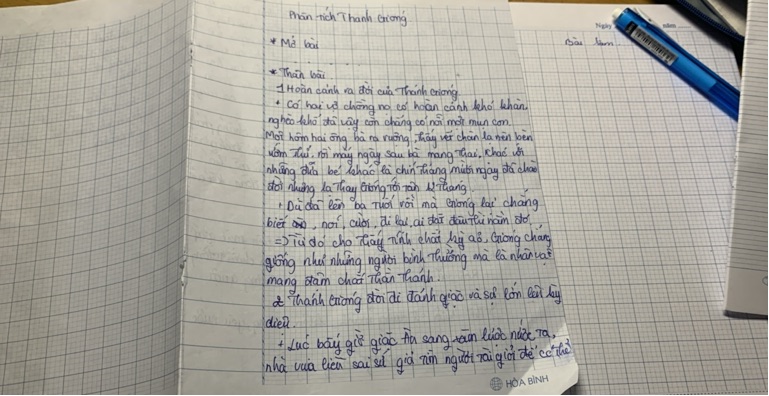 Phân tích Thánh Gióng
* Mở bài
* Thân bài
1 Hoàn cảnh ra đời của Thánh Gióng.
+ Có hai vợ chồng nọ có hoàn cảnh khó khăn,
nghèo khổ đã vậy còn chẳng có nổi một mụn con.
Một hôm hai ông bà ra ruộng, thấy vết chân lạ nên bèn
ướm thử. rồi mấy ngày sau bà mang thai, khác với
những đứa bé khác là chín tháng mười ngày đã chào
đời nhưng lạ thay Gióng tới tận 12 tháng.
+ Dù đã lên ba tuổi rồi mà Gióng lại chẳng
biết nói, cười, đi lại, ai đặt đâu thì nằm đó.
=> Từ đó cho thấy tính chất kỳ ảo, Gióng chẳng
giống như những người bình thường mà là nhân vật
mang đậm chất thần thánh.
2 Thánh Gióng đòi đi đánh giặc và sự lớn lên kỳ
diệu.
+ Lúc bấy giờ giặc Ân sang xâm lược nước ta,
nhà vua liền sai sứ giả tìm người tài giỏi để có thể
HÒA BÌNH
Ngày
năm
Bài làm